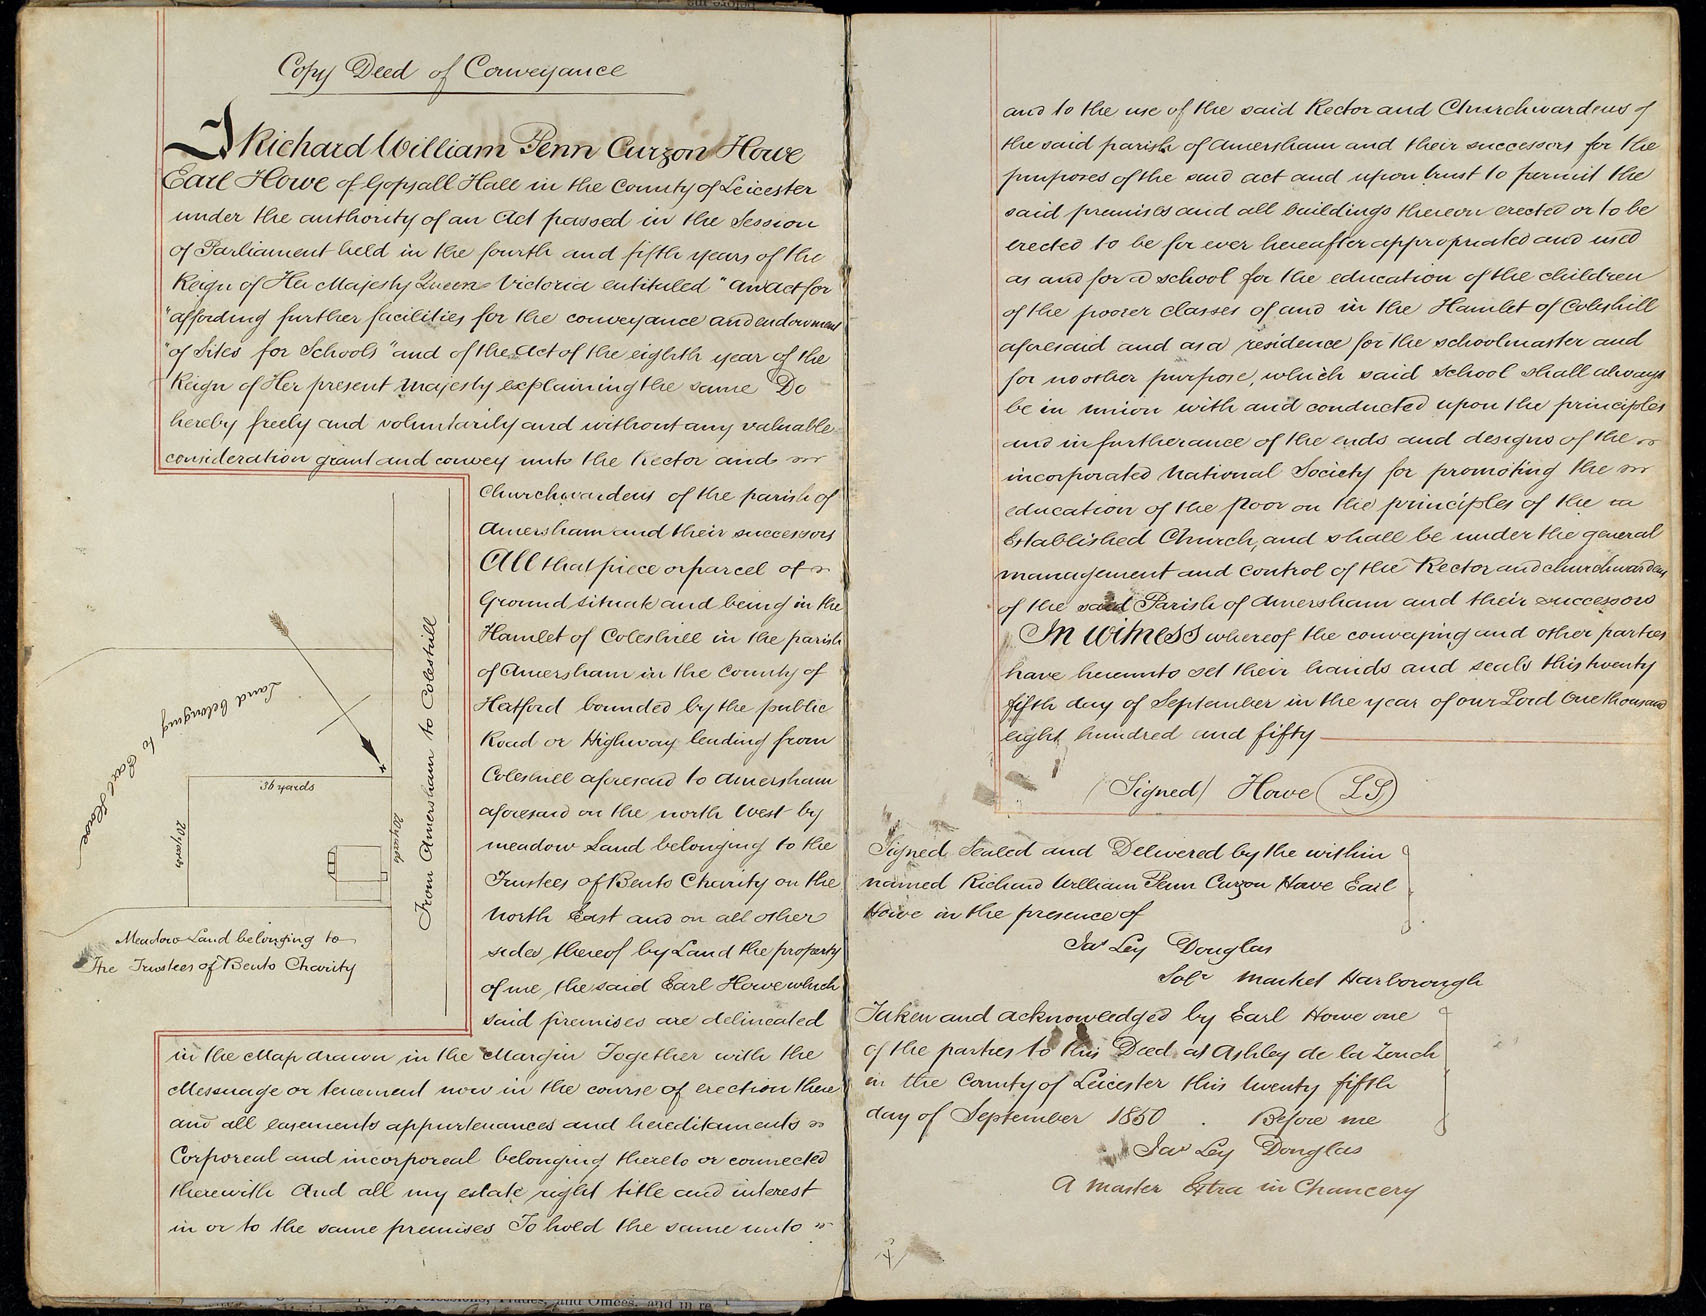 Copy Deed of Conveyance
I Richard William Penn Curzon Howe
Earl Howe of Gopsall Hall in the County of Leicester
under the authority of an Act passed in the Session
of Parliament held in the fourth and fifth years of the
Reign of Her Majesty Queen Victoria entituled "An act for
"affording further facilities for the conveyance and endowment
"of Sites for Schools" and of the Act of the eighth year of the
Reign of Her present Majesty explaining the same Do
hereby freely and voluntarily and without any valuable
consideration grant and convey unto the Rector and
Churchwardens of the parish of
Amersham and their successors
All that piece or parcel of
Ground situate and being in the
Hamlet of Coleshill in the parish
of Amersham in the County of
Hatford bounded by the public
Road or Highway leading from
Coleshill aforesaid to Amersham
aforesaid on the north West by
meadow Land belonging to the
Trustees of Bents Charity on the
North East and on all other
sides thereof by Land the property
of me the said Earl Howe which
said premises are delineated
in the Map drawn in the Margin Together with the
Messuage or tenement now in the course of erection there
and all easements appurtenances and hereditaments
Corporeal and incorporeal belonging thereto or connected
therewith And all my estate right title and interest
in or to the same premises To hold the same unto
Land belonging to Earl Howe
36 yards
20 yards
20 yards
From Amersham to Coleshill
Meadow Land belonging to
The Trustees of Bents Charity
and to the use of the said Rector and Churchwardens of
the said parish of Amersham and their successors for the
purposes of the said act and upon trust to permit the
said premises and all buildings thereon erected or to be
erected to be for ever hereafter appropriated and used
as and for a school for the education of the children
of the poorer classes of and in the Hamlet of Coleshill
aforesaid and as a residence for the schoolmaster and
for no other purpose, which said school shall always
be in union with and conducted upon the principles
and in furtherance of the ends and designs of the
incorporated National Society for promoting the
education of the Poor on the principles of the
Established Church, and shall be under the general
management and control of the Rector and churchwardens
of the said Parish of Amersham and their successors
In Witness whereof the conveying and other parties
have hereunto set their hands and seals this twenty
fifth day of September in the year of our Lord One thousand
eight hundred and fifty
(Signed) Howe (LS)
Signed Sealed and Delivered by the within
named Richard William Penn Curzon Howe Earl
Howe in the presence of
Jas Ley Douglas
Solr Market Harborough
Taken and acknowledged by Earl Howe one
of the parties to this Deed at Ashley de la Zouch
in the County of Leicester this twenty fifth
day of September 1850 . Before me
Jas Ley Douglas
A Master Extra in Chancery